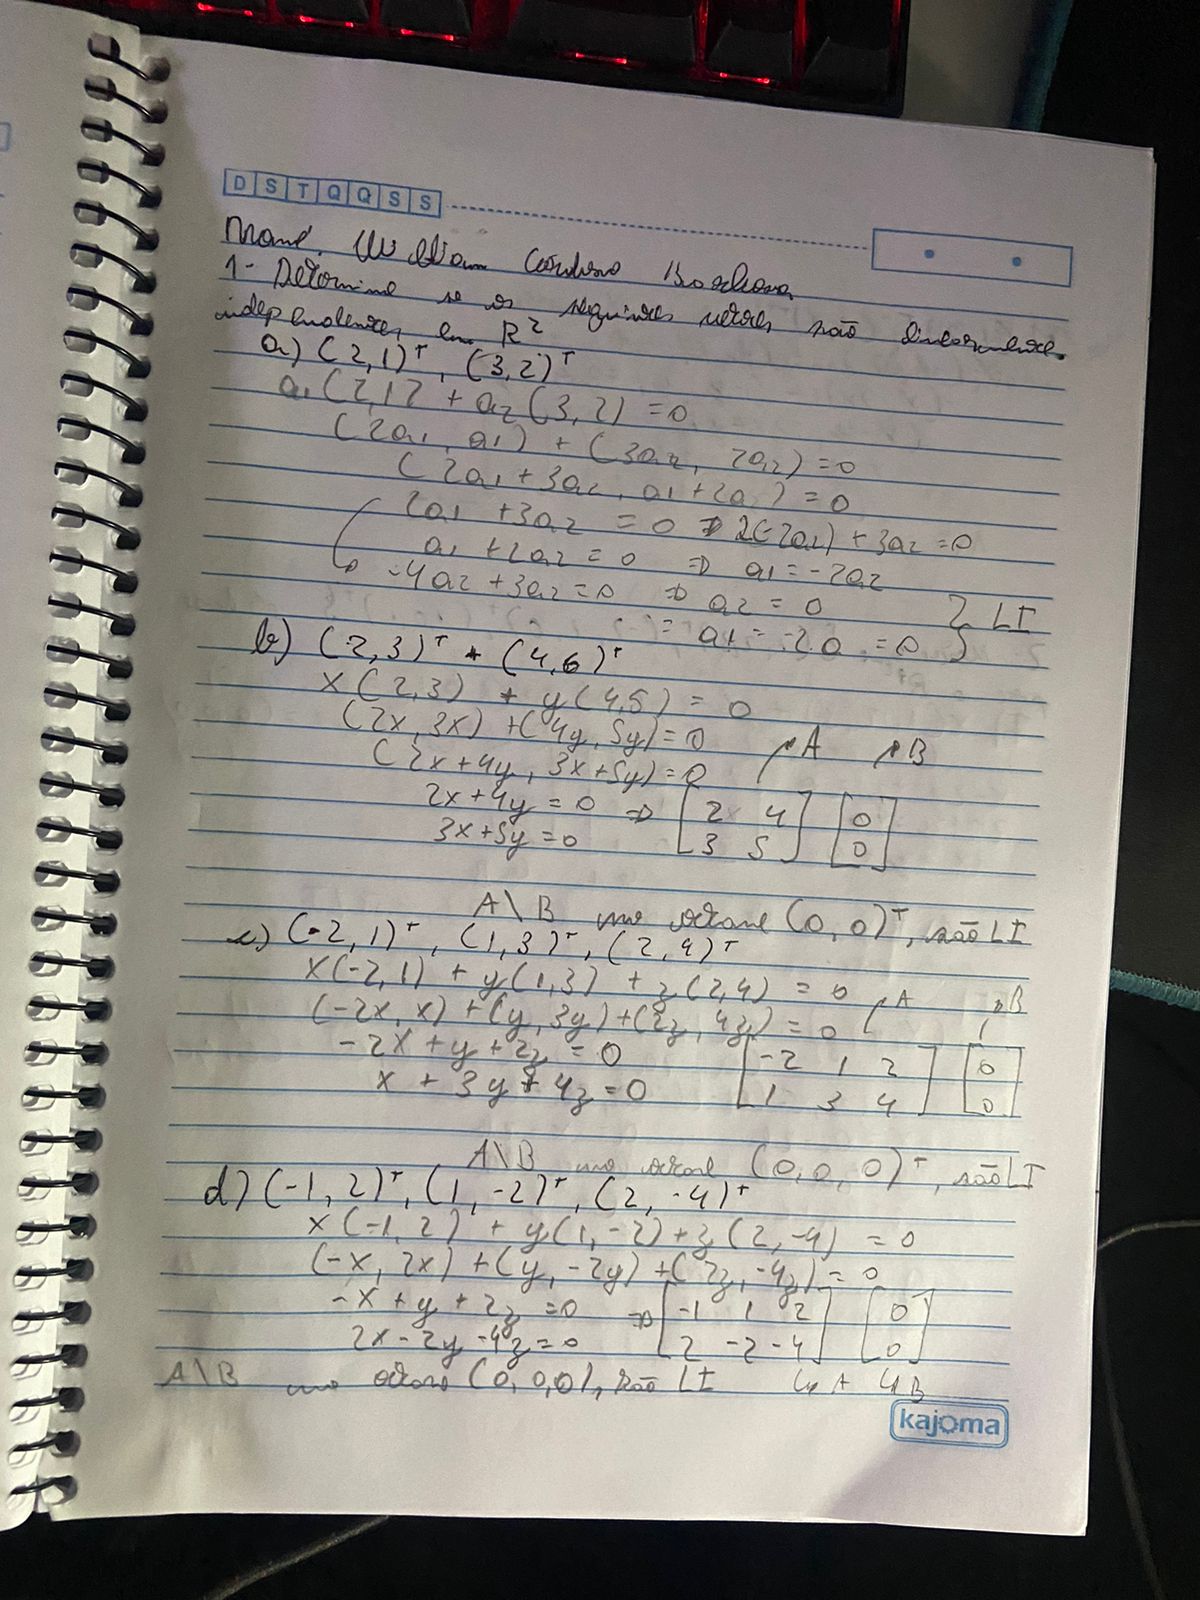 D S T Q Q S S
Nome: William Cardoso
1- Determine se os seguintes vetores são linearmente
independentes em R²
a) (2,1)ᵀ, (3,2)ᵀ
a1(2,1) + a2(3,2) = 0
(2a1, a1) + (3a2, 2a2) = 0
(2a1 + 3a2, a1 + 2a2) = 0
2a1 + 3a2 = 0 ⇒ 2(-2a2) + 3a2 = 0
a1 + 2a2 = 0 ⇒ a1 = -2a2
-4a2 + 3a2 = 0 ⇒ a2 = 0
= a1 = -2.0 = 0 } LI
b) (2,3)ᵀ + (4,6)ᵀ
x(2,3) + y(4,5) = 0
(2x, 3x) + (4y, 5y) = 0
(2x+4y, 3x+5y) = 0 A B
2x+4y = 0 ⇒ [2 4] [0]
3x+5y = 0 [3 5] [0]
A\B no octave (0,0)ᵀ, são LI
c) (-2,1)ᵀ, (1,3)ᵀ, (2,4)ᵀ
x(-2,1) + y(1,3) + z(2,4) = 0
(-2x, x) + (y, 3y) + (2z, 4z) = 0 A B
-2x + y + 2z = 0 [-2 1 2] [0]
x + 3y + 4z = 0 [1 3 4] [0]
A\B no octave (0,0,0)ᵀ, são LI
d) (-1,2)ᵀ, (1,-2)ᵀ, (2,-4)ᵀ
x(-1,2) + y(1,-2) + z(2,-4) = 0
(-x, 2x) + (y, -2y) + (2z, -4z) = 0
-x + y + 2z = 0 ⇒ [-1 1 2] [0]
2x - 2y - 4z = 0 [2 -2 -4] [0]
A\B no octave (0,0,0), são LI ↳ A ↳ B
kajoma